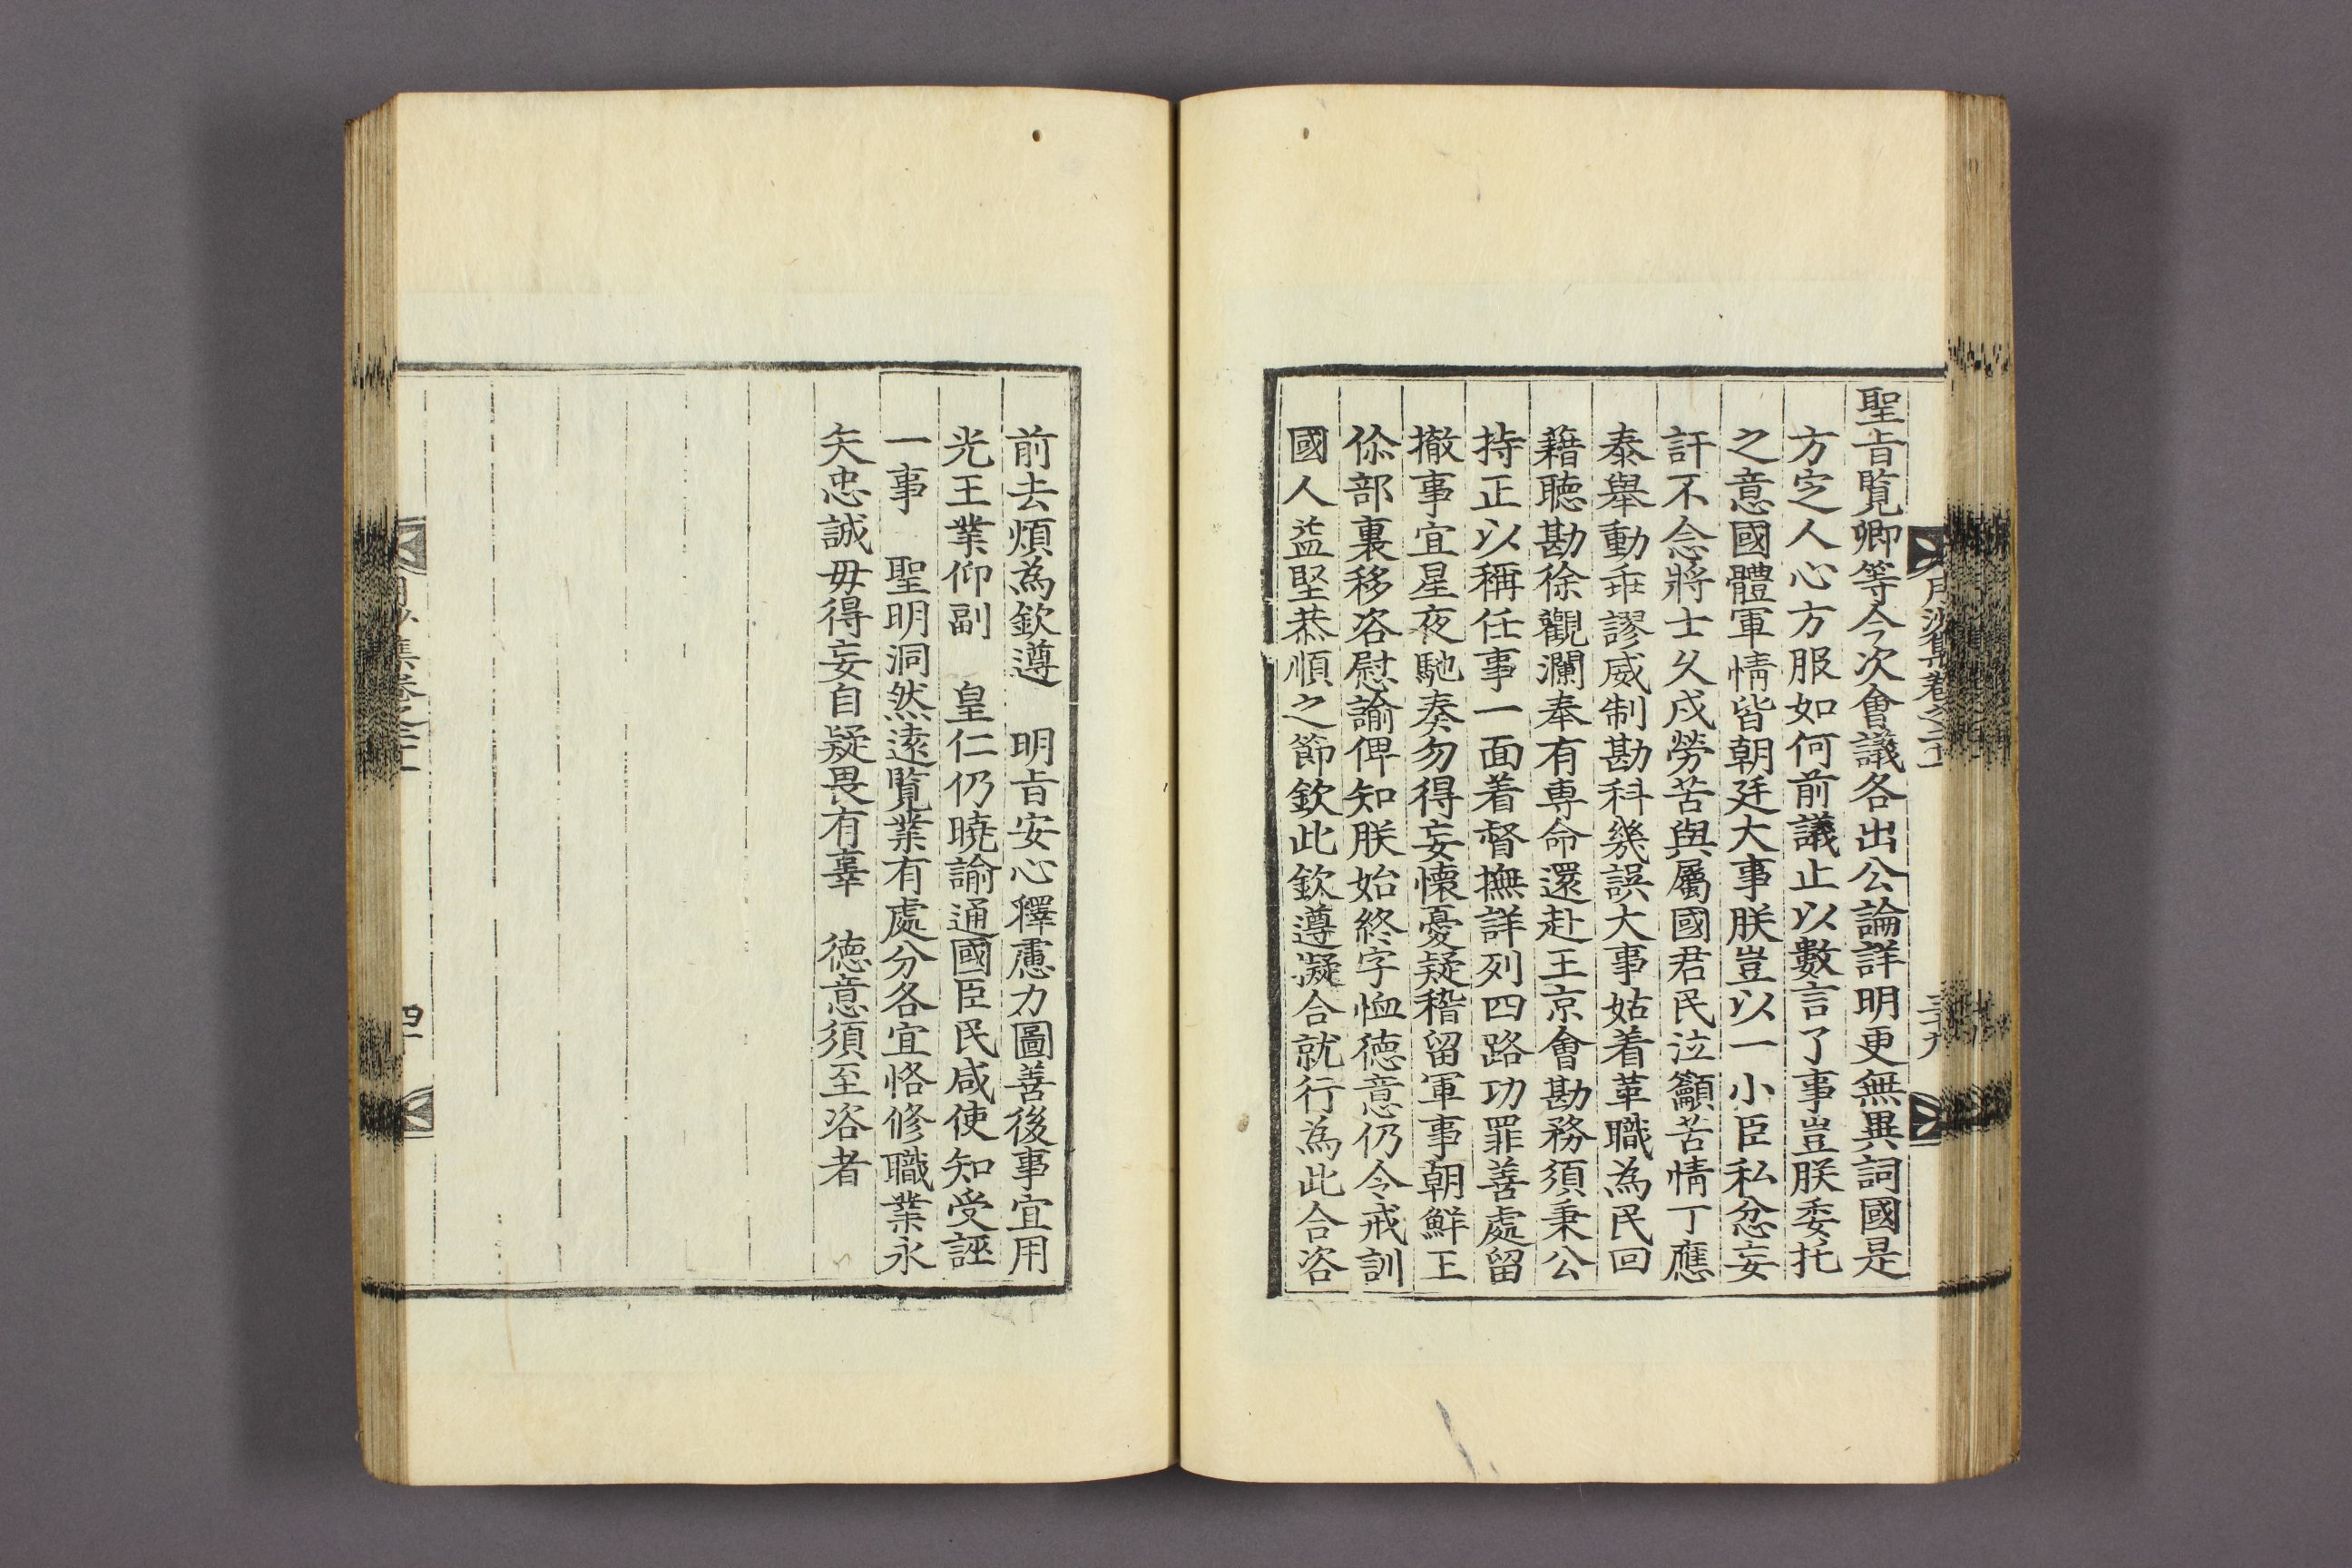 聖旨覧卿等今次會議各出公論詳明更無異詞國是
方定人心方服如何前議止以數言了事豈朕委托
之意國體軍情皆朝廷大事朕豈以一小臣私忿妄
訐不念將士久戍勞苦與屬國君民泣籲苦情丁應
泰舉動乖謬威制勘科幾誤大事姑着革職為民回
籍聽勘徐觀瀾奉有專命還赴王京會勘務須秉公
持正以稱任事一面着督撫詳列四路功罪善處留
撤事宜星夜馳奏勿得妄懷憂疑稽留軍事朝鮮王
你部裏移咨慰諭俾知朕始終字恤德意仍令戒訓
國人益堅恭順之節欽此欽遵凝合就行為此合咨
前去煩為欽遵 明旨安心釋慮力圖善後事宜用
光王業仰副 皇仁仍曉諭通國臣民咸使知受誣
一事 聖明洞然遠覧業有處分各宜恪修職業永
矢忠誠毋得妄自疑畏有辜 德意須至咨者